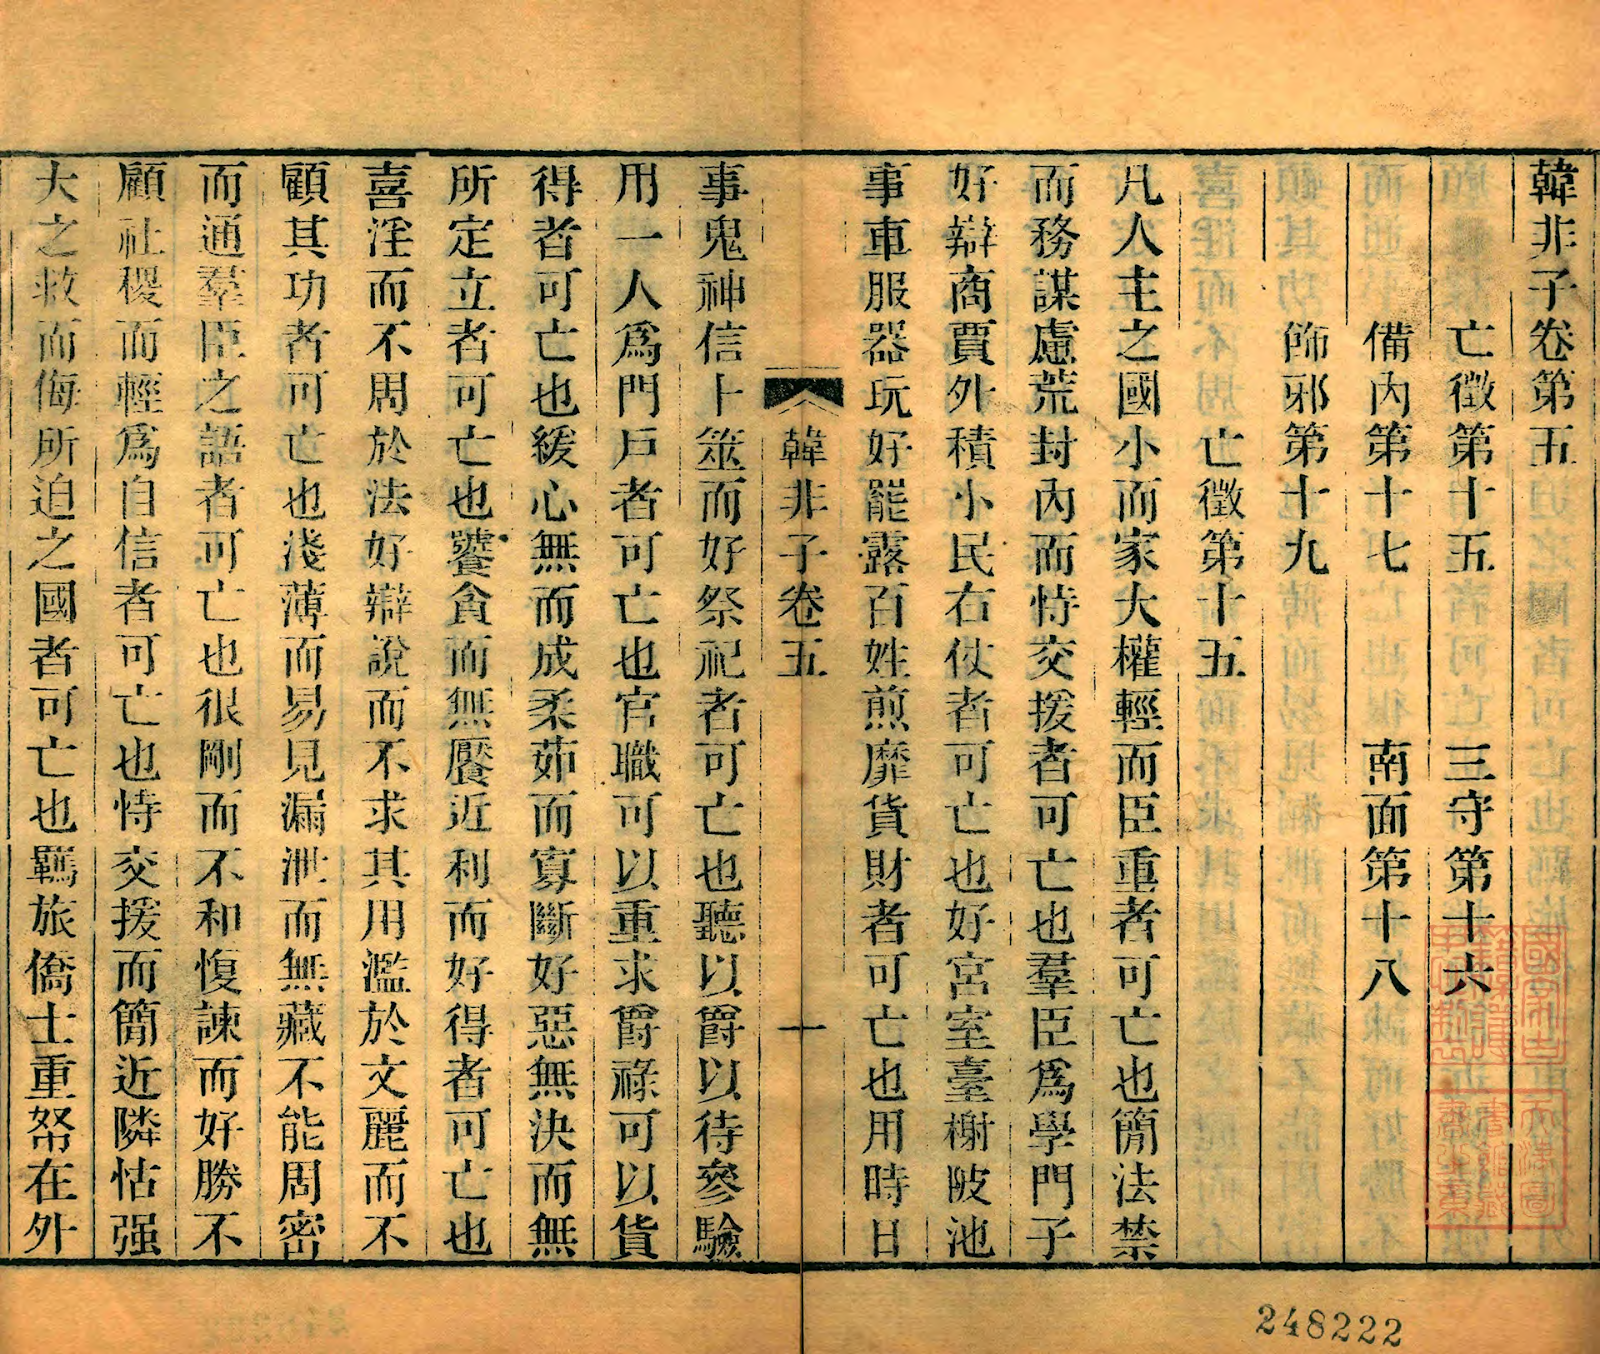 韓非子卷第五
亡徵第十五　三守第十六
備內第十七　南面第十八
飾邪第十九
亡徵第十五
凡人主之國小而家大權輕而臣重者可亡也簡法禁
而務謀慮荒封內而恃交援者可亡也羣臣為學門子
好辯商賈外積小民右仗者可亡也好宮室臺榭陂池
事車服器玩好罷露百姓煎靡貨財者可亡也用時日
韓非子卷五
一
事鬼神信卜筮而好祭祀者可亡也聽以爵以待參驗
用一人為門戶者可亡也官職可以重求爵祿可以貨
得者可亡也緩心無而成柔茹而寡斷好惡無決而無
所定立者可亡也饕貪而無饜近利而好得者可亡也
喜淫而不周於法好辯說而不求其用濫於文麗而不
顧其功者可亡也淺薄而易見漏泄而無藏不能周密
而通羣臣之語者可亡也很剛而不和愎諫而好勝不
顧社稷而輕為自信者可亡也恃交援而簡近隣怙强
大之救而侮所迫之國者可亡也羈旅僑士重帑在外
248222